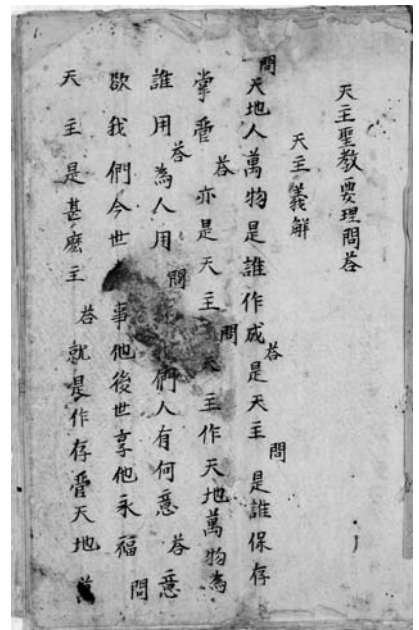 天主聖教要理問荅
天主義觧
問天地人萬物是誰作成荅是天主問是誰保存
掌管荅亦是天主問主作天地萬物為
誰用荅為人用問們人有何意荅意
欲我們今世事他後世享他永福問
天主是甚麽主荅就是作存管天地萬